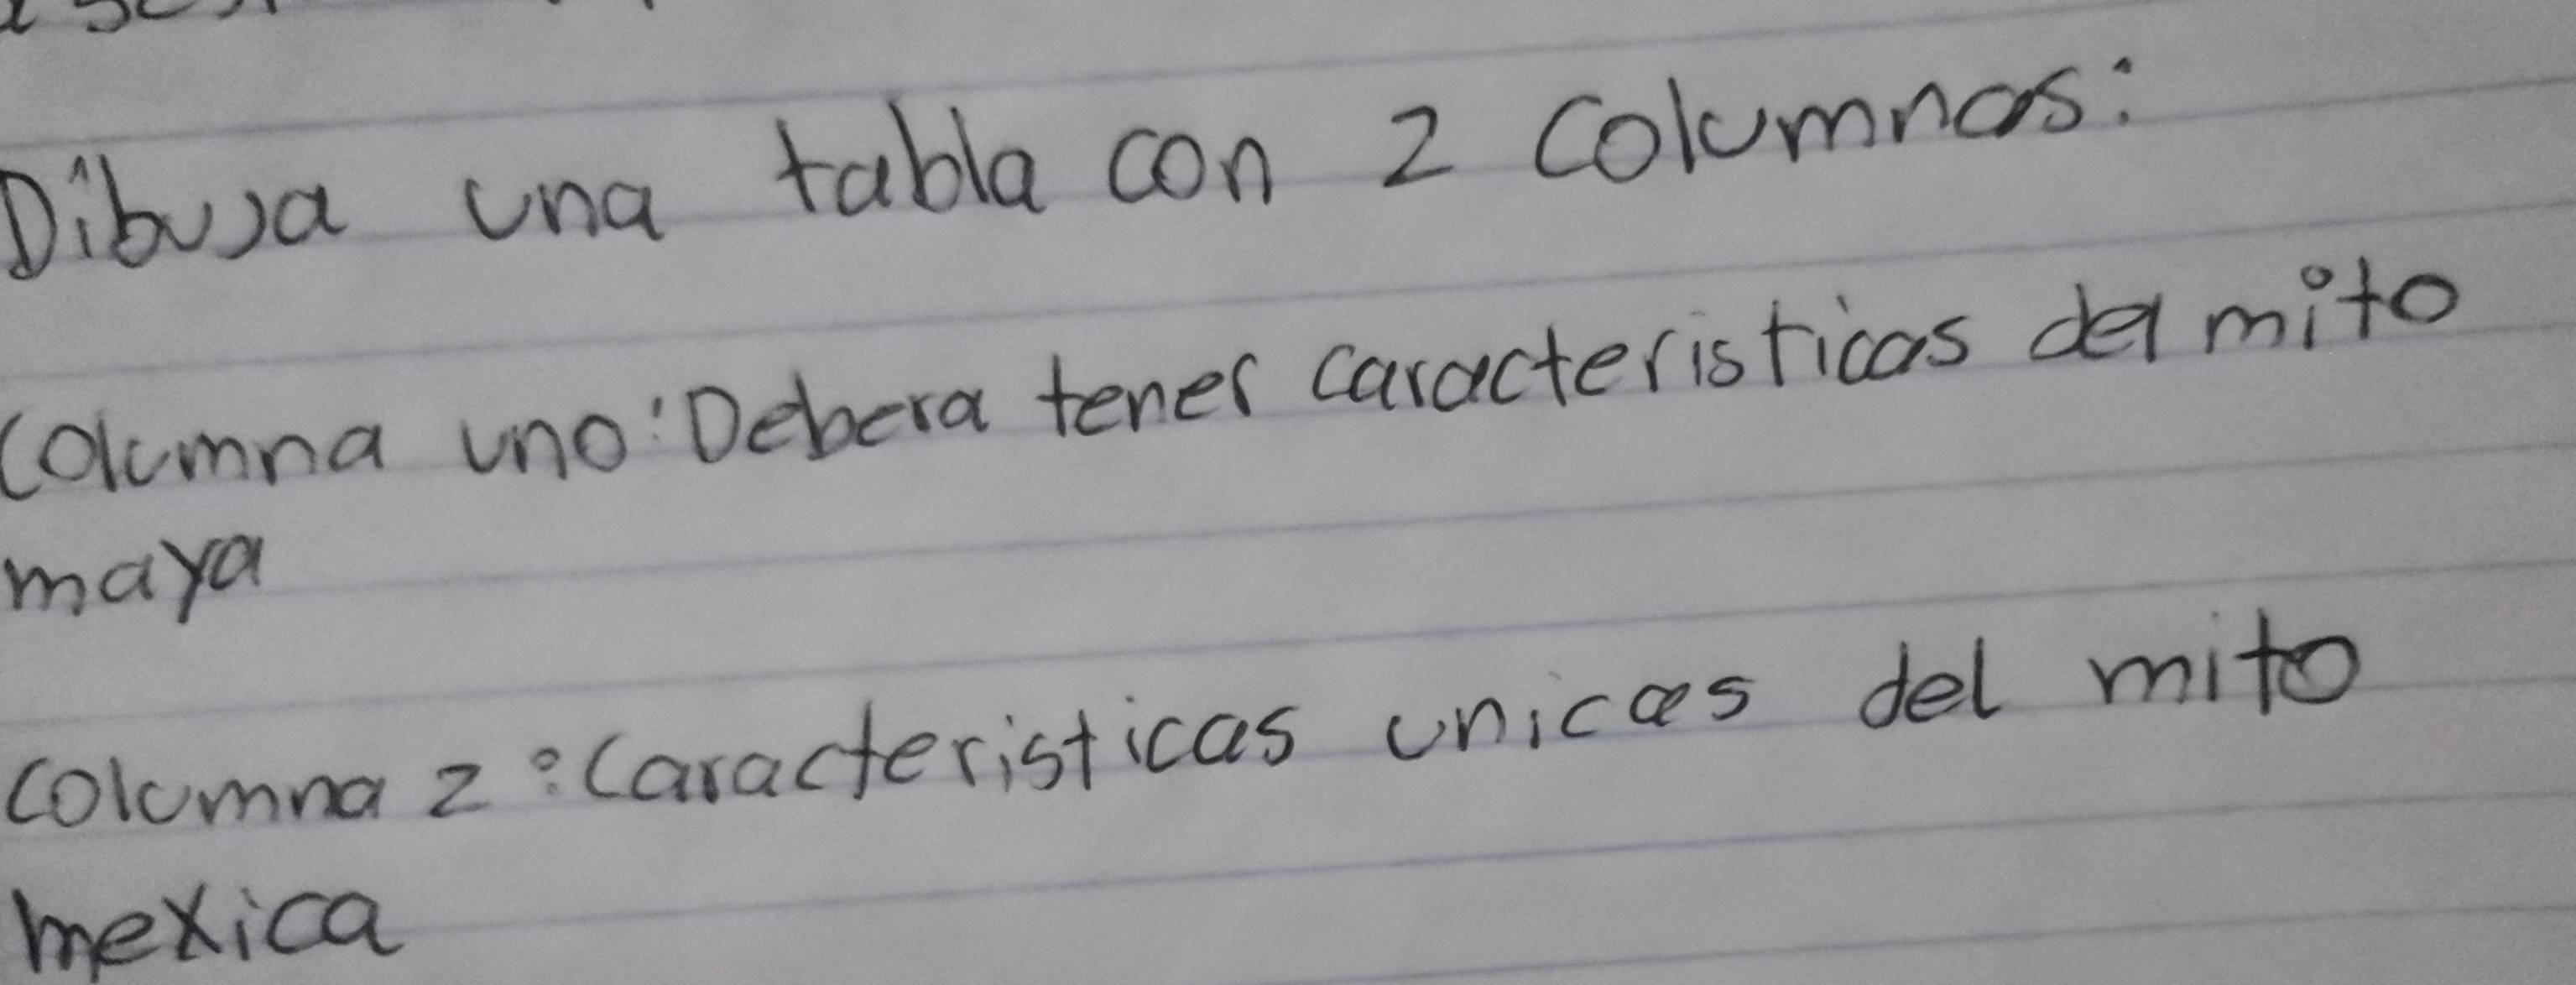 Dibuja una tabla con 2 Columnas:
Columna uno: Debera tener caracteristicas del mito
maya
Columna 2: Caracteristicas unicas del mito
mexica